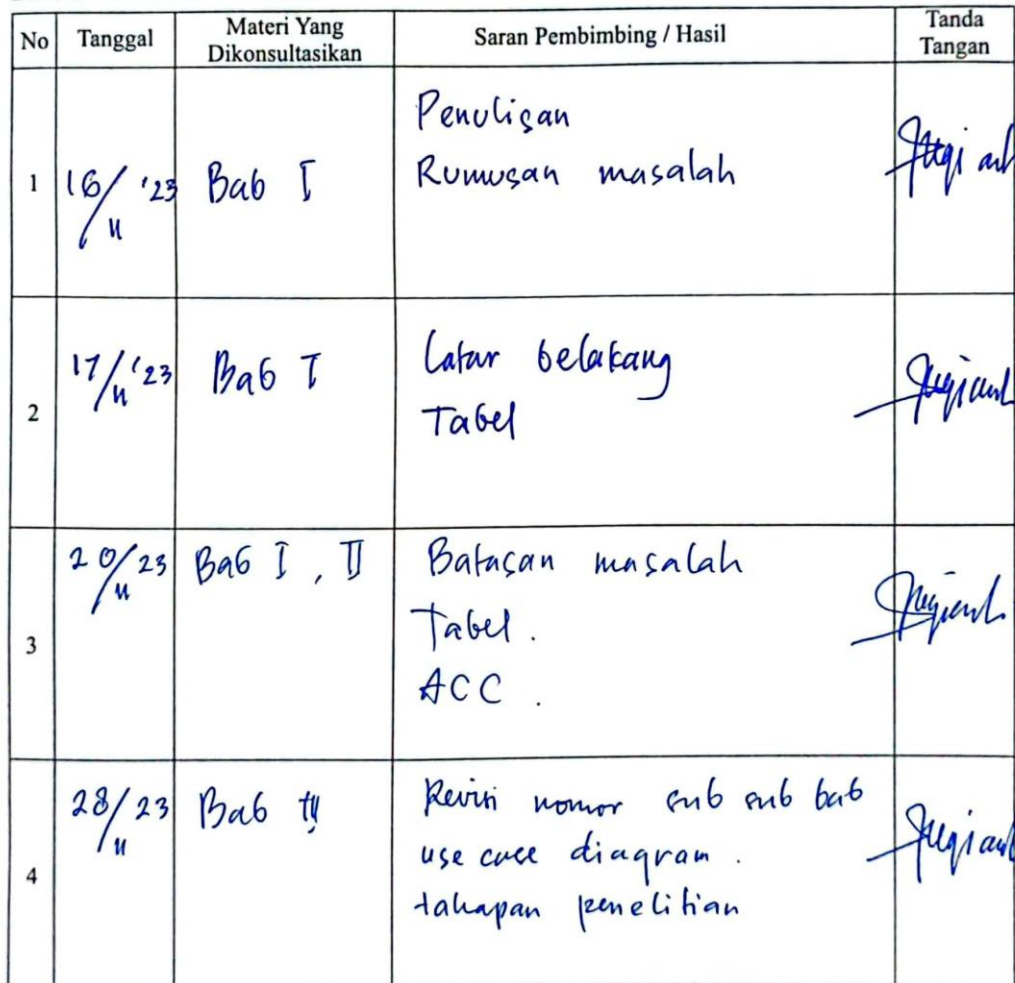 No Tanggal Materi Yang Dikonsultasikan Saran Pembimbing / Hasil Tanda Tangan
1 16/11 '23 Bab I Penulisan
Rumusan masalah
2 17/11 '23 Bab I Latar belakang
Tabel
3 20/11 23 Bab I, II Batasan masalah
Tabel.
ACC.
4 28/11 23 Bab Revisi nomor sub sub bab
use case diagram.
tahapan penelitian